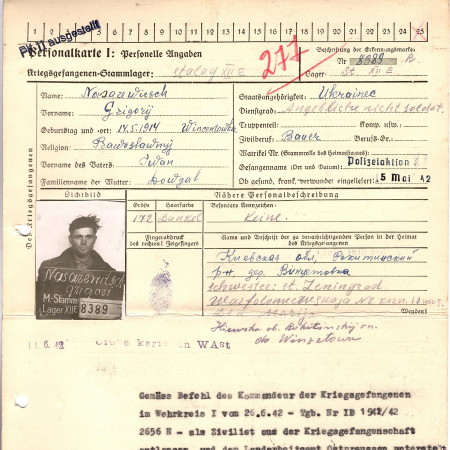 1 2 3 4 5 6 7 8 9 10 11 12 13 14 15 16 17 18 19 20 21 22 23 24 25
PK II ausgestellt
Personalkarte I: Personelle Angaben
Kriegsgefangenen-Stammlager: Stalag XII E
277
Beschriftung der Erkennungsmarke
Nr. 8389
Lager: St XII E
Des Kriegsgefangenen
Name: Nasarewitsch
Vorname: Grigorij
Geburtstag und -ort: 14.5.1914 Wincentowka
Religion: Prawoslawnij
Vorname des Vaters: Iwan
Familienname der Mutter: Dowgal
Staatsangehörigkeit: Ukrainec
Dienstgrad: Angebliche nicht soldat.
Truppenteil: Komp. usw.:
Zivilberuf: Bauer Berufs-Gr.:
Matrikel Nr. (Stammrolle des Heimatstaates):
Gefangennahme (Ort und Datum): Polizeiaktion
Ob gesund, krank, verwundet eingeliefert: 5 Mai 42
Lichtbild
Nähere Personalbeschreibung
Größe Haarfarbe Besondere Kennzeichen:
172 Dunkel Keine.
Fingerabdruck
des rechten! Zeigefingers
Name und Anschrift der zu benachrichtigenden Person in der Heimat
des Kriegsgefangenen
Киевская обл, Рокитинский
р-н, дер.
schwester: st. Leningrad
Wenden!
Kiewska ob. Rokitinskij
Nasarewitsch
Grigori
M-Stamm
Lager XIIE 8389
11.6.42
karte an WASt
Gemäss Befehl des Kommandeur der Kriegsgefangenen
im Wehrkreis I vom 26.6.42 - Tgb. Nr IB 1942/42
2656 N - als Zivilist aus der Kriegsgefangenschaft
entlassen und dem Landarbeitsamt Ostpreussen unterstellt